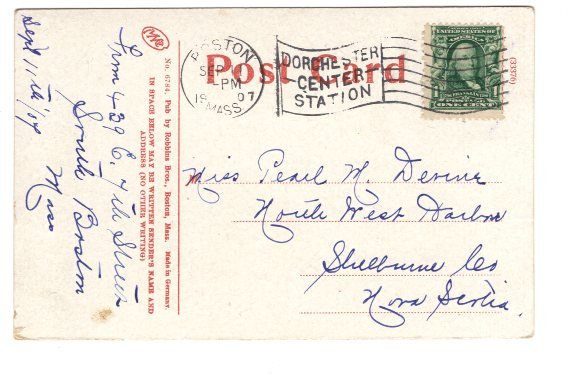 Post Card
BOSTON
SEP
-PM
19 07
MASS.
DORCHESTER
CENTER
STATION
UNITED STATES OF
AMERICA
FRANKLIN
ONE CENT
(33376)
Miss Pearl M. Devine
North West Harbor
Shelburne Co
Nova Scotia.
No. 6784. Pub by Robbins Bros., Boston, Mass. Made in Germany.
IN SPACE BELOW MAY BE WRITTEN SENDER'S NAME AND
ADDRESS (NO OTHER WRITING)
From 439 E. 7th Street
South Boston
Mass
Sept 11th/07